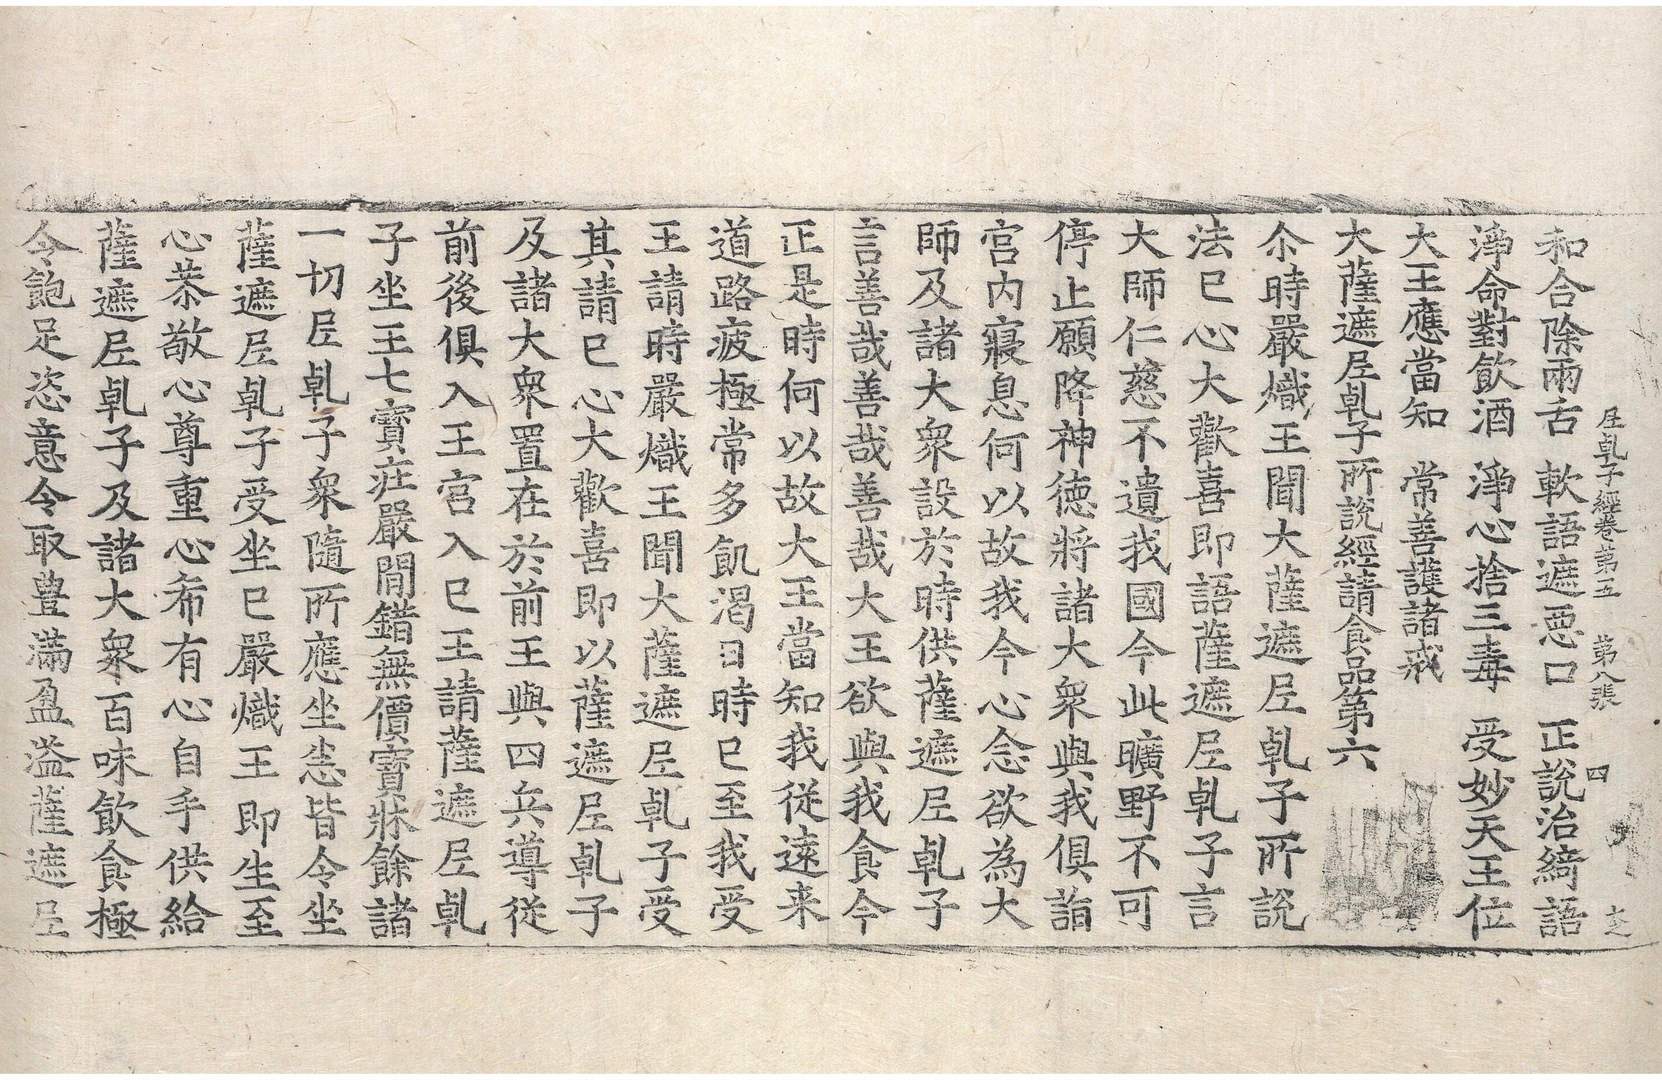 𡰱乹子經卷第五　第八張　四
和合除兩舌　軟語遮惡口　正說治綺語
淨命對飲酒　淨心捨三毒　受妙天王位
大王應當知　常善護諸戒
大薩遮𡰱乹子所說經請食品第六
尒時嚴熾王聞大薩遮𡰱乹子所說
法已心大歡喜即語薩遮𡰱乹子言
大師仁慈不遺我國今此曠野不可
停止願降神德將諸大衆與我俱詣
宮內寢息何以故我今心念欲為大
師及諸大衆設於時供薩遮𡰱乹子
言善哉善哉善哉大王欲與我食今
正是時何以故大王當知我從遠来
道路疲極常多飢渴日時已至我受
王請時嚴熾王聞大薩遮𡰱乹子受
其請已心大歡喜即以薩遮𡰱乹子
及諸大衆置在於前王與四兵導從
前後俱入王宮入已王請薩遮𡰱乹
子坐王七寶莊嚴閒錯無價寶牀餘諸
一切𡰱乹子衆隨所應坐悉皆令坐
薩遮𡰱乹子受坐已嚴熾王即生至
心恭敬心尊重心希有心自手供給
薩遮𡰱乹子及諸大衆百味飲食極
令飽足恣意令取豊滿盈溢薩遮𡰱